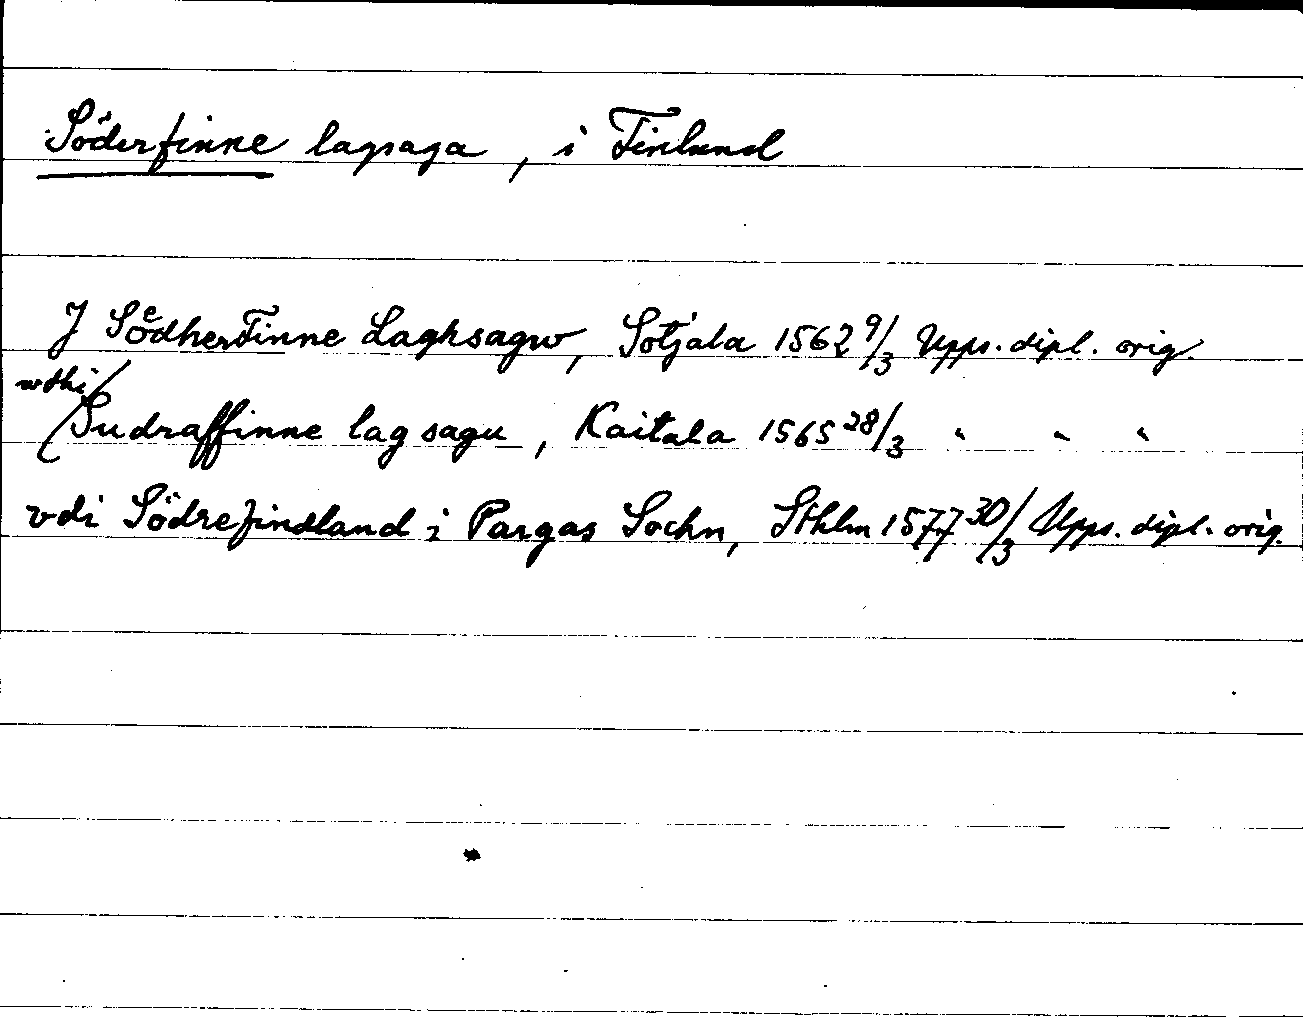 Söderfinne lagsaga, i Finland
J SödherFinne Laghsagw, Sotjala 1562 9/3 Upps. dipl. orig.
wthi/
Sudraffinne lagsagu, Kaitala 1565 28/3 " " "
vdi Södrefindland i Pargas Sochn, Sthlm 1577 30/3 Upps. dipl. orig.